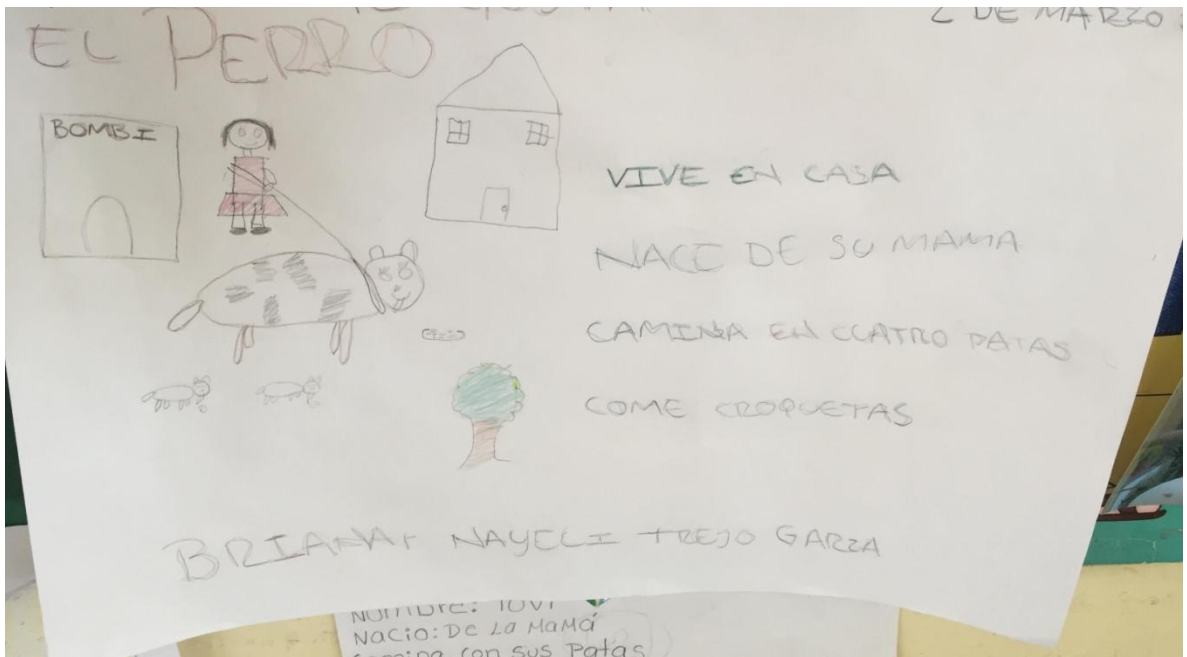 GUSTA
2 DE MARZO
EL PERRO
BOMBI
VIVE EN CASA
NACE DE SU MAMA
CAMINA EN CUATRO PATAS
COME CROQUETAS
BRIANA NAYELI TREJO GARZA
Nombre: TOVI
Nacio: De La Mamá
Camina con sus Patas